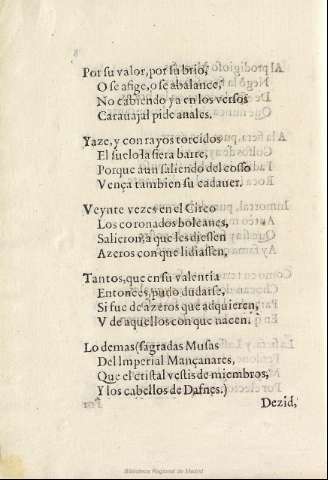 Por su valor, por su brio,
O se afige, o se abalance,
No cabiendo ya en los versos
Carauajal pide anales.
Yaze, y con rayos torcidos
El suelo la fiera barre,
Porque aun saliendo del cosso
Vença tambien su cadauer.
Veynte vezes en el Circo
Los coronados bolcanes,
Salieron, a que les diessen
Azeros con que lidiassen,
Tantos, que en su valentia
Entonces, pudo dudarse,
Si fue de azeros que adquieren,
V de aquellos con que nacen.
Lo demas (sagradas Musas
Del Imperial Mançanares,
Que el cristal vestis de miembros,
Y los cabellos de Dafnes.)
Dezid,
Biblioteca Regional de Madrid